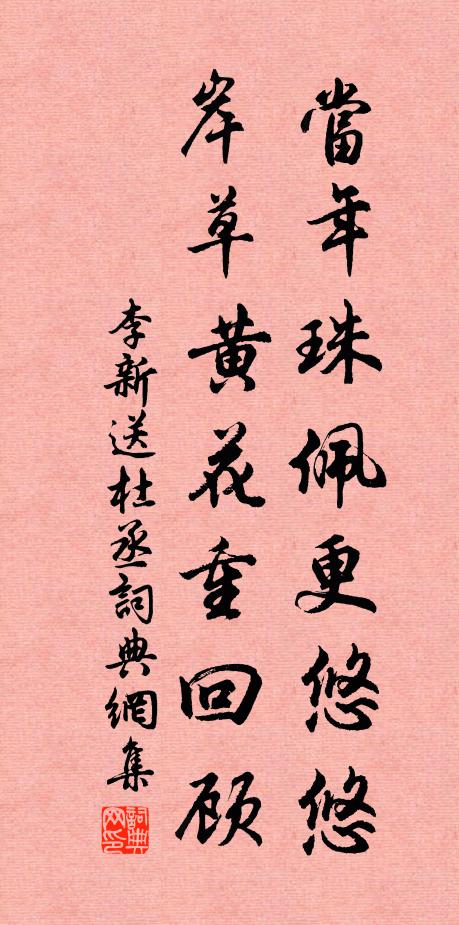 當年珠佩更悠悠
岸草黄花重回顾
李新送杜丞詞典網集
詞典网印